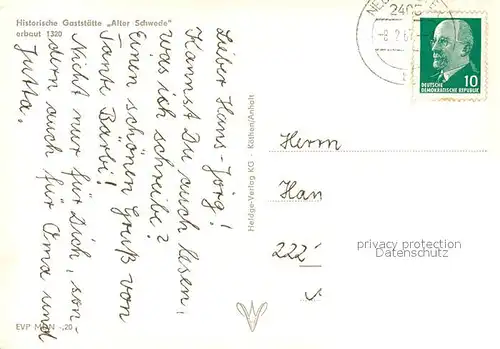 Historische Gaststätte „Alter Schwede“
erbaut 1320
Lieber Hans-Jörg!
Kannst Du auch lesen,
was ich schreibe?
Einen schönen Gruß von
Tante Barbi!
Nicht nur für Dich, son,
dern auch für Oma und
Jutta.
EVP MDN -,20
Heldge-Verlag KG - Köthen/Anhalt
2405
-8. 2. 67
10
DEUTSCHE
DEMOKRATISCHE REPUBLIK
Herrn
Han
222
privacy protection
Datenschutz